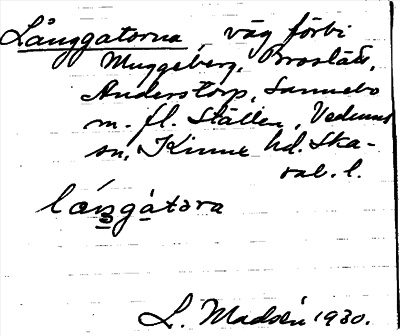 Långgatorna, väg förbi
Muggeberg, Broslätt,
Anderstorp, Sannebo
m. fl. ställen, Vedums
sn, Kinne hd. Ska-
rab. l.
L. Madsén 1930.